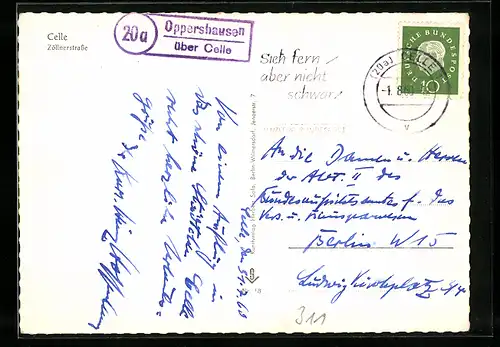 Celle
Zöllnerstraße
20a
Oppershausen
über Celle
Sieh fern
aber nicht
schwarz
(20a) CELLE
-1.8.60
v
DEUTSCHE BUNDESPOST
10
Von einem Ausflug in
das schöne Städtchen Celle
recht herzliche Urlaubs-
grüße
Celle, den 31.7.60
An die Damen u. Herren
der Abt. II des
Bundesaufsichtsamtes f. das
Vers. u. Bausparwesen
Berlin W 15
Ludwigkirchplatz 3/4
311